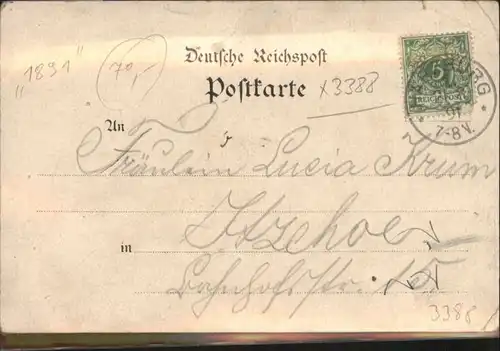 "1891"
70,-
Deutsche Reichspost
Postkarte
x3388
5
REICHSPOST
BURG
91
7-8V.
An
Fräulein Lucia Krum
in
Itzehoe
Bahnhofstr. 15
3388